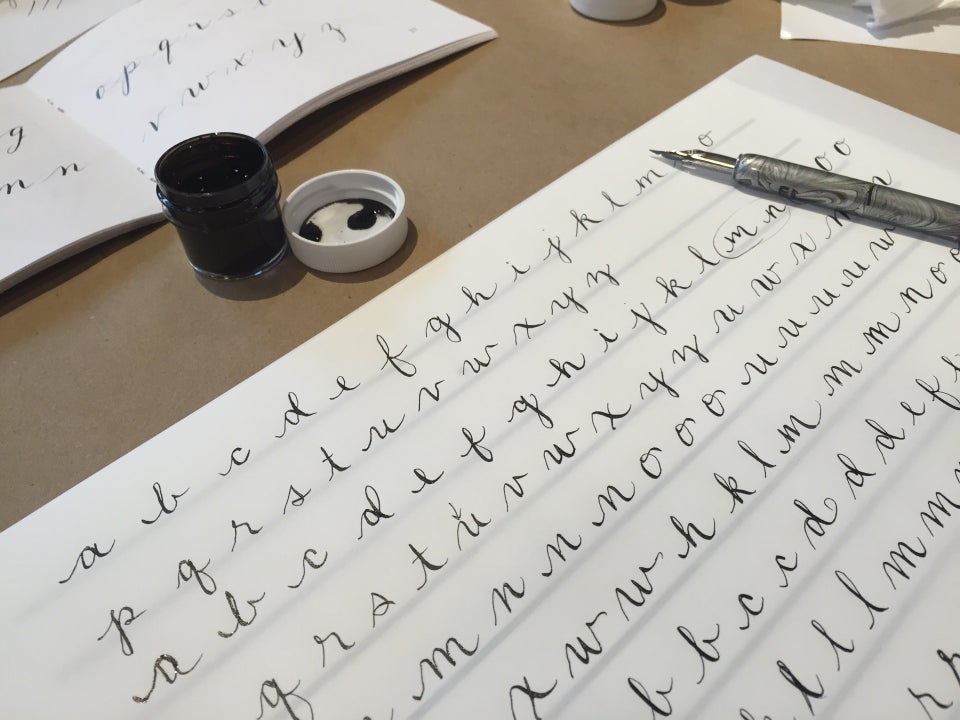 v w x y z
m n
a b c d e f g h i j k l m o
p q r s t u v w x y z
a b c d e f g h i j k l m n o o
q r s t u v w x y z u w x n n
m n n n o o o u u u u w
x w w h k l m m m n o o
b b c c d d d e f
l l m m
r r